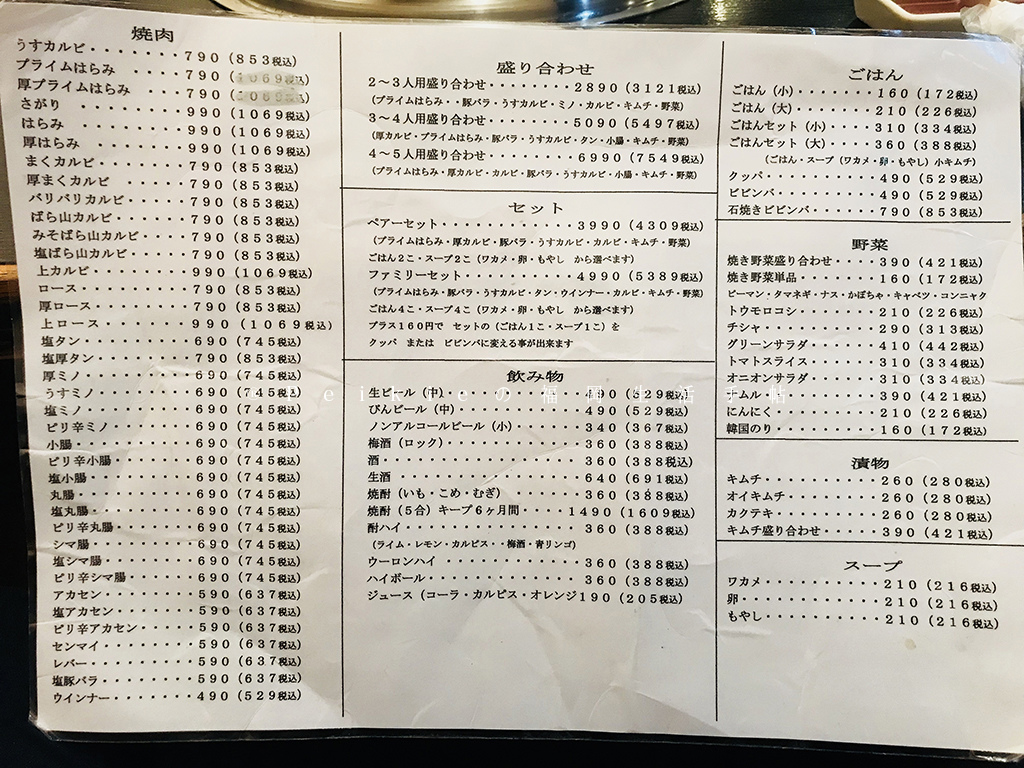 焼肉
うすカルビ・・・・・・・790(853税込)
プライムはらみ ・・・・790(1069税込)
厚プライムはらみ ・・・790(1069税込)
さがり ・・・・・・・・990(1069税込)
はらみ ・・・・・・・・990(1069税込)
厚はらみ ・・・・・・・990(1069税込)
まくカルビ・・・・・・・790(853税込)
厚まくカルビ ・・・・・790(853税込)
バリバリカルビ・・・・・790(853税込)
ばら山カルビ・・・・・・790(853税込)
みそばら山カルビ・・・・790(853税込)
塩ばら山カルビ・・・・・790(853税込)
上カルビ・・・・・・・・990(1069税込)
ロース・・・・・・・・・790(853税込)
厚ロース・・・・・・・・790(853税込)
上ロース・・・・・・・990(1069税込)
塩タン・・・・・・・・・690(745税込)
塩厚タン・・・・・・・・790(853税込)
厚ミノ・・・・・・・・・690(745税込)
うすミノ・・・・・・・・690(745税込)
塩ミノ・・・・・・・・・690(745税込)
ピリ辛ミノ・・・・・・・690(745税込)
小腸・・・・・・・・・・690(745税込)
ピリ辛小腸・・・・・・・690(745税込)
塩小腸・・・・・・・・・690(745税込)
丸腸・・・・・・・・・・690(745税込)
塩丸腸・・・・・・・・・690(745税込)
ピリ辛丸腸・・・・・・・690(745税込)
シマ腸・・・・・・・・・690(745税込)
塩シマ腸・・・・・・・・690(745税込)
ピリ辛シマ腸・・・・・・690(745税込)
アカセン・・・・・・・・590(637税込)
塩アカセン・・・・・・・590(637税込)
ピリ辛アカセン・・・・・590(637税込)
センマイ・・・・・・・・590(637税込)
レバー・・・・・・・・・590(637税込)
塩豚バラ・・・・・・・・590(637税込)
ウインナー・・・・・・・490(529税込)
盛り合わせ
2～3人用盛り合わせ・・・・・・・・2890(3121税込)
(プライムはらみ・・豚バラ・うすカルビ・ミノ・カルビ・キムチ・野菜)
3～4人用盛り合わせ・・・・・・・・5090(5497税込)
(厚カルビ・プライムはらみ・豚バラ・うすカルビ・タン・小腸・キムチ・野菜)
4～5人用盛り合わせ・・・・・・・・6990(7549税込)
(プライムはらみ・厚カルビ・カルビ・豚バラ・うすカルビ・小腸・キムチ・野菜)
セット
ペアーセット・・・・・・・・・・・・3990(4309税込)
(プライムはらみ・厚カルビ・豚バラ・うすカルビ・カルビ・キムチ・野菜)
ごはん2こ・スープ2こ(ワカメ・卵・もやし から選べます)
ファミリーセット・・・・・・・・・・・4990(5389税込)
(プライムはらみ・豚バラ・うすカルビ・タン・ウインナー・カルビ・キムチ・野菜)
ごはん4こ・スープ4こ(ワカメ・卵・もやし から選べます)
プラス160円で セットの(ごはん1こ・スープ1こ)を
クッパ または ビビンバに変える事が出来ます
飲み物
生ビール(中)・・・・・・・・・・・・490(529税込)
びんビール(中)・・・・・・・・・・・490(529税込)
ノンアルコールビール(小)・・・・・・340(367税込)
梅酒(ロック)・・・・・・・・・・・・360(388税込)
酒・・・・・・・・・・・・・・・・・・360(388税込)
生酒・・・・・・・・・・・・・・・・・640(691税込)
焼酎(いも・こめ・むぎ)・・・・・・・360(388税込)
焼酎(5合)キープ6ヶ月間・・・・1490(1609税込)
酎ハイ・・・・・・・・・・・・・・・・360(388税込)
(ライム・レモン・カルピス・・梅酒・青リンゴ)
ウーロンハイ・・・・・・・・・・・・・360(388税込)
ハイボール・・・・・・・・・・・・・・360(388税込)
ジュース(コーラ・カルピス・オレンジ190(205税込)
ごはん
ごはん(小)・・・・・・・160(172税込)
ごはん(大)・・・・・・・210(226税込)
ごはんセット(小)・・・・310(334税込)
ごはんセット(大)・・・・360(388税込)
(ごはん・スープ(ワカメ・卵・もやし)小キムチ)
クッパ・・・・・・・・・・490(529税込)
ビビンバ・・・・・・・・・490(529税込)
石焼きビビンバ・・・・・・790(853税込)
野菜
焼き野菜盛り合わせ・・・・390(421税込)
焼き野菜単品・・・・・・・160(172税込)
ピーマン・タマネギ・ナス・かぼちゃ・キャベツ・コンニャク
トウモロコシ・・・・・・・210(226税込)
チシャ・・・・・・・・・・290(313税込)
グリーンサラダ・・・・・・410(442税込)
トマトスライス・・・・・・310(334税込)
オニオンサラダ・・・・・・310(334税込)
ナムル・・・・・・・・・・390(421税込)
にんにく・・・・・・・・・210(226税込)
韓国のり・・・・・・・・・160(172税込)
漬物
キムチ・・・・・・・・・・260(280税込)
オイキムチ・・・・・・・・260(280税込)
カクテキ・・・・・・・・・260(280税込)
キムチ盛り合わせ・・・・・390(421税込)
スープ
ワカメ・・・・・・・・・・210(216税込)
卵・・・・・・・・・・・・210(216税込)
もやし・・・・・・・・・・210(216税込)
の福岡生活手帖